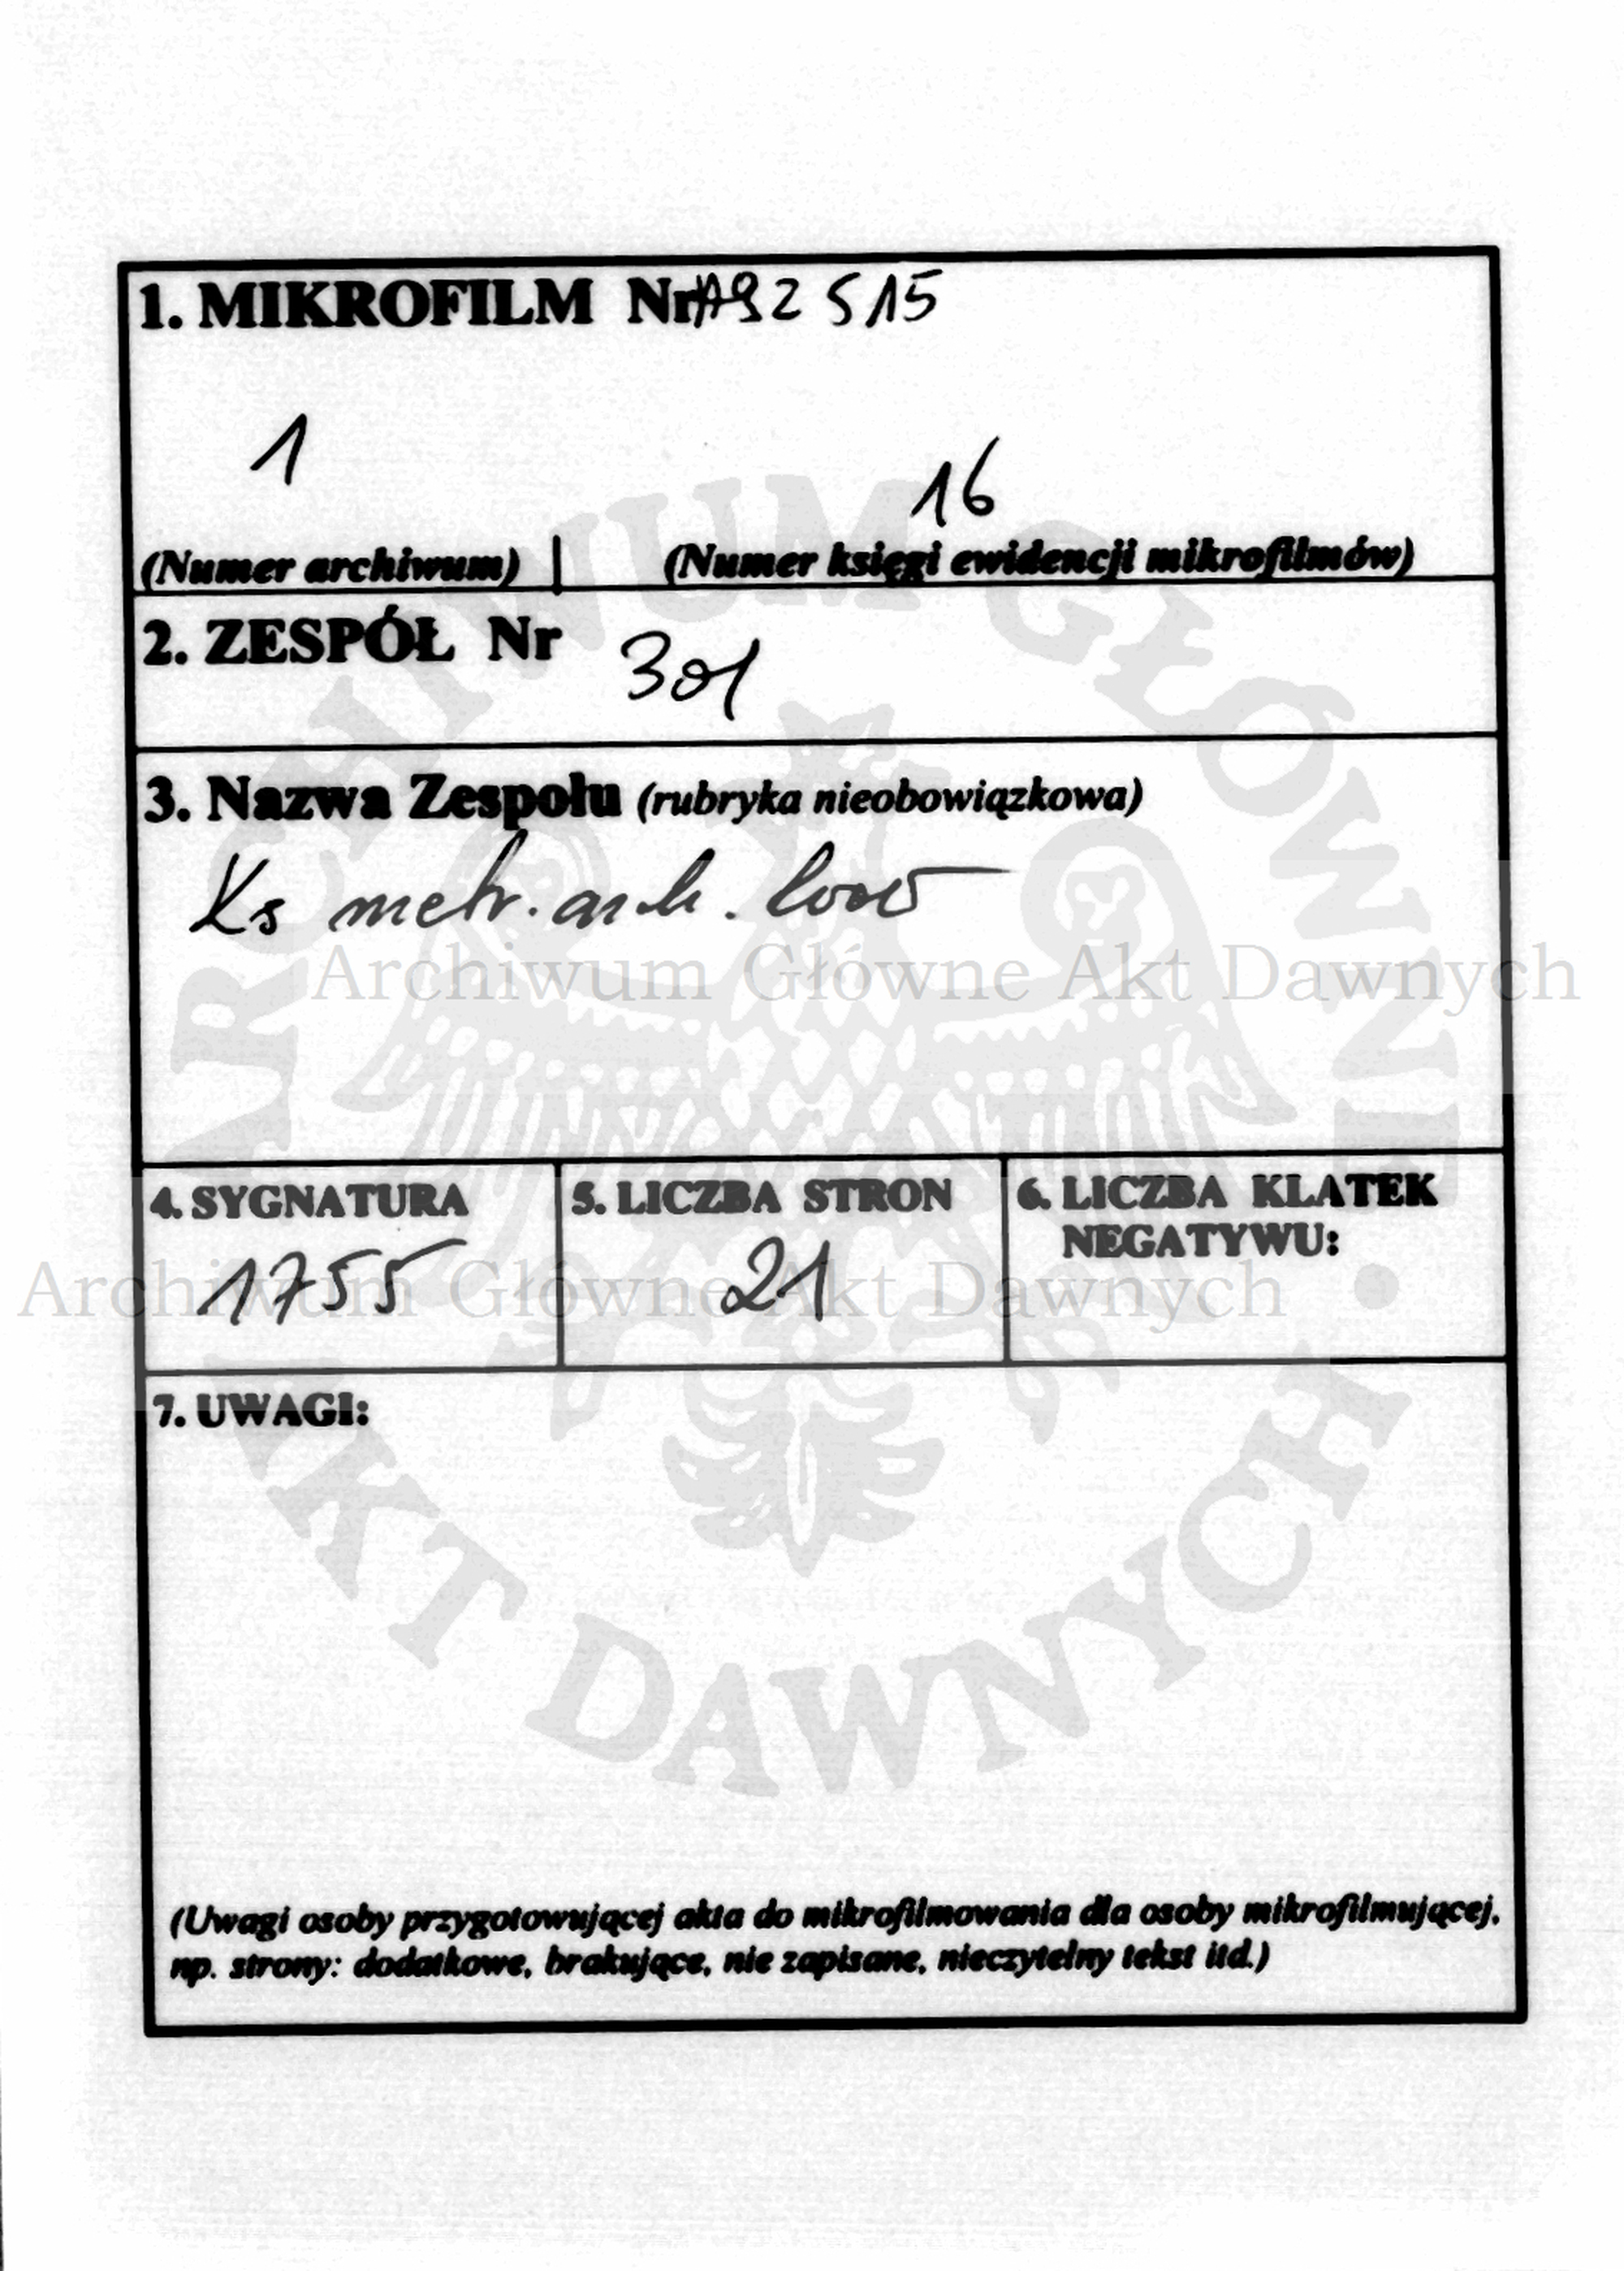 1. MIKROFILM Nr A92515
1
16
(Numer archiwum) | (Numer księgi ewidencji mikrofilmów)
2. ZESPÓŁ Nr 301
3. Nazwa Zespołu (rubryka nieobowiązkowa)
Ks metr. arch.
Archiwum Główne Akt Dawnych
4. SYGNATURA
1755
5. LICZBA STRON
21
6. LICZBA KLATEK
NEGATYWU:
Archiwum Główne Akt Dawnych
7. UWAGI:
(Uwagi osoby przygotowującej akta do mikrofilmowania dla osoby mikrofilmującej,
np. strony: dodatkowe, brakujące, nie zapisane, nieczytelny tekst itd.)
ARCHIWUM GŁÓWNE AKT DAWNYCH